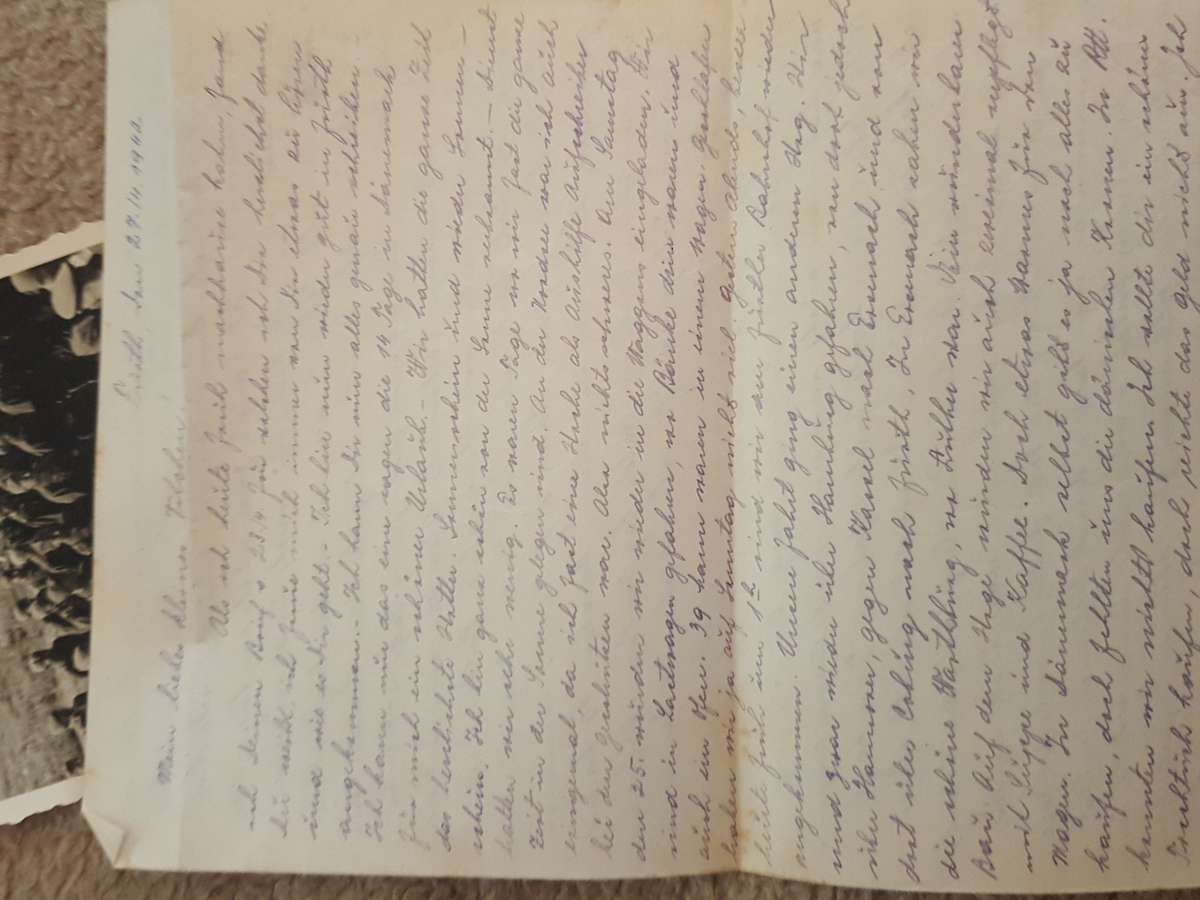 Fürth, den 27.IV.1940.
Mein lieber kleiner
Als ich heute früh nachhause kam, fand
ich deinen Brief v. 23.4. für welchen ich Dir herzlichst danke.
Du weißt ich freue mich immer von Dir etwas zu hören
und wie es Dir geht. - Ich bin nun wieder gut in Fürth
angekommen. - Ich kann Dir nun alles genau schreiben. -
Ich kann nur das eine sagen die 14 Tage in Dänemark
für mich ein schöner Urlaub. - Wir hatten die ganze Zeit
das herrlichste Wetter. Sonnenschein und wieder Sonnen-
schein. Ich bin ganz schön von der Sonne verbrannt. - Dienst
hatten wir sehr wenig. Es waren Tage wo wir fast die ganze
Zeit in der Sonne gelegen sind. An der war ich auch
einigemal da ich fast eine Woche als Aushilfe Aufschreiber
bei den war. Also nichts schweres. Am Samstag
den 25. wurden wir wieder in die Waggons eingeladen. Wir
sind in Lastwagen gefahren, wo Bänke drin waren und
auch ein Ofen. 39 Mann waren in einem Wagen. Geschlafen
haben wir ja auf Samstag nicht viel gestern abends, heute
heute früh um 1 h sind wir am Fürther Bahnhof wieder
angekommen. Unsere Fahrt ging einen anderen Weg. Wir
sind zwar wieder über Hamburg gefahren, von dort jedoch
über Hannover, gegen Kassel nach Eisenach und von
dort über Coburg nach Fürth. In Eisenach sahen wir
die schöne Wartburg, wo Luther war. Ein wunderbarer
Bau. Auf dem Wege wurden wir auch zweimal verpflegt
mit Suppe und Kaffee. Doch etwas warmes für den
Magen. In Dänemark selbst gibt es ja noch alles zu
kaufen, doch fehlten uns die dänischen Kronen. In
konnten wir nichts kaufen. Ich wollte dir ein schönes
kaufen, doch reichte das Geld nicht aus. Ich